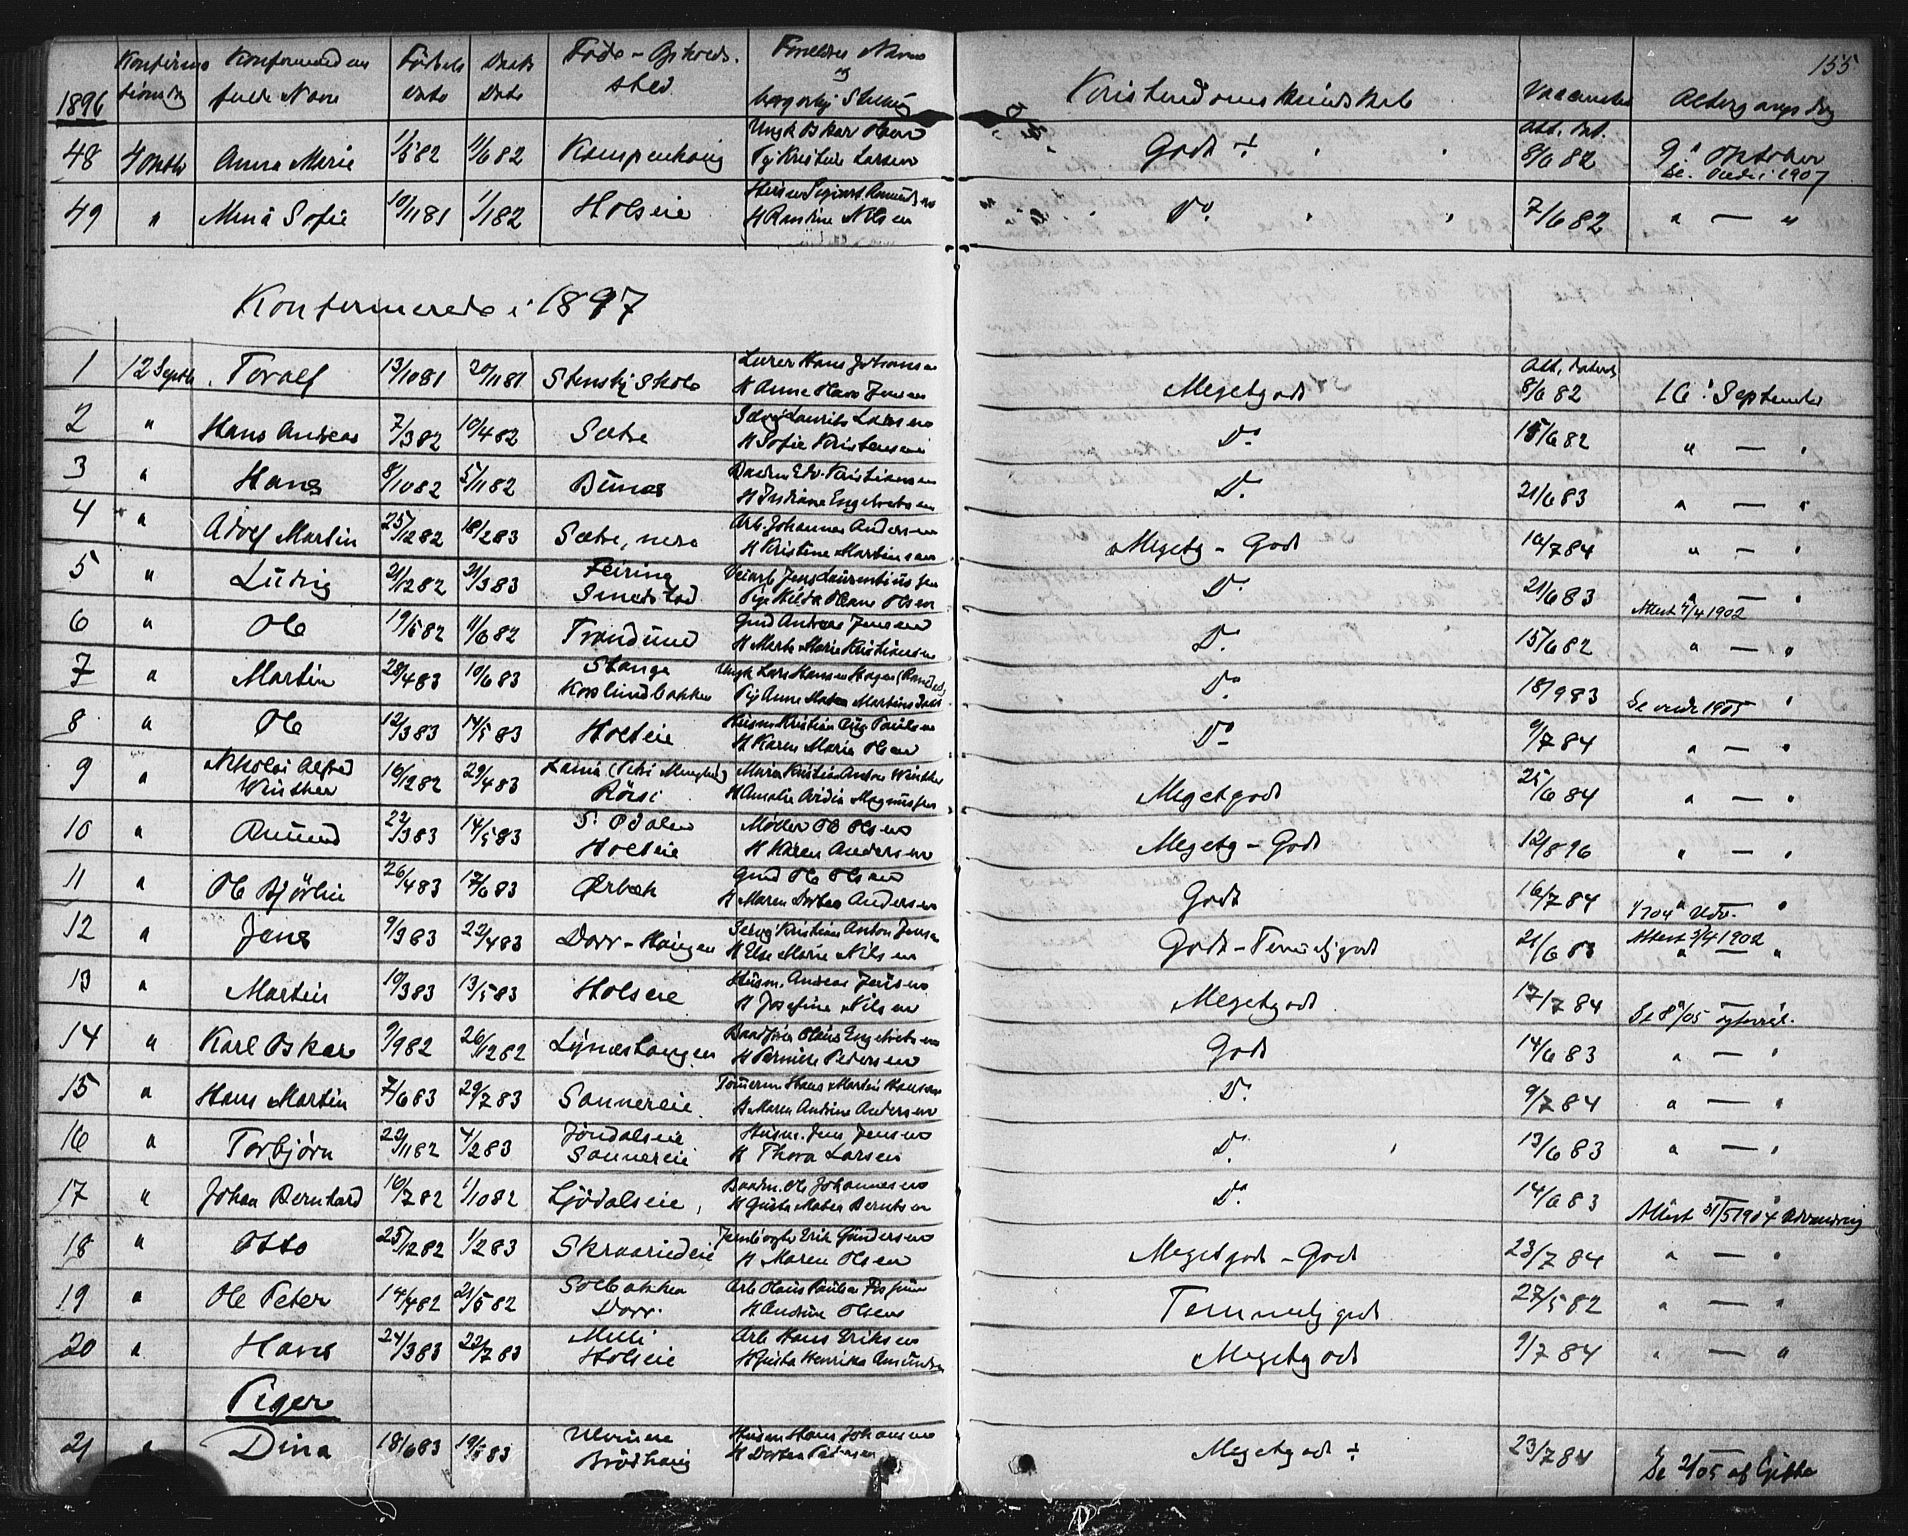 155
1896 Konfirmationsdag Konfirmandens fulde Navn Fødsels Dato Daabs Dato Føde - Opholdssted Forældres Navn og borgerlig Stilling Kristendoms Kundskab Vaccineret Altergangsdag
48 4 Oktb Anna Marie 1/5 82 11/6 82 Kampenhaug Ungk Oskar Olsen Pig Kristine Larsen Godt ÷ Att. dat. 8/6 82 9' Oktober Se. Vedr. 1907
49 " Mina Sofie 10/11 81 1/1 82 Holseie Husm Sigvart Amundsen H Randine Nilsen Do 7/6 82 " — "
Konfirmerede i 1897
1 12 Septb Toralf 13/10 81 20/11 81 Stensby Skole Lærer Hans Johansen H Anna Olava Jensen Megetgodt Att. dateret 8/6 82 16' September
2 " Hans Andreas 7/3 82 10/4 82 Sætre Laurits Larsen H Sofie Kristensen Do 15/6 82 " — "
3 " Hans 8/10 82 5/11 82 Bunes Edv. Kristiansen H Indiane Engebretsen Do 21/6 83 " — "
4 " Adolf Martin 25/12 82 18/2 83 Sætre, nere Arb. Johannes Andersen H Kristine Martinsen Megetg - Godt 10/7 84 " — "
5 " Ludvig 21/12 82 21/3 83 Feiring Smedstad Veiarb Jens Laurentiussen Pige Hilda Oleane Olsen Do 21/6 83 " — "
6 " Ole 19/5 82 11/6 82 Trandum Gmd Andreas Jensen H Marte Marie Kristiansen Do 15/6 82 Attest 7/4 1902 " — "
7 " Martin 28/4 83 10/6 83 Stange Korslundbakken Ungk Lars Hansen Hagen Pig Anne Maten Martinsdatt Do 18/9 83 Se vedr 1905 "
8 " Ole 12/3 83 14/5 83 Holseie Husm Kristian Aug. Paulsen H Karen Marie Olsen Do 9/7 84 " — "
9 " Nikolai Alfred Winther 16/12 82 29/4 83 Rørsi Kristian Anton Winther H Amalie Ardin Magnussen Megetgodt 25/6 84 " — "
10 " Amund 22/3 83 14/5 83 S. Odalen Holseie Møller Ole Olsen H Karen Andersen Megetg - Godt 12/8 96 " — "
11 " Ole Bjørlin 26/4 83 17/6 83 Ørbæk Gmd Ole Olsen H Maren Dortea Andersen Godt 16/7 84 1/7 04 Udv. "
12 " Jens 9/3 83 22/4 83 Dorr-Haugen Selvej Kristian Anton Jensen H Else Marie Nilsen Godt-Temmelig godt 21/6 83 Attest 3/4 1902 " — "
13 " Martin 10/3 83 13/5 83 Holseie Husm. Andreas Jensen H Josefine Nilsen Megetgodt 17/7 84 Se 8/05 "
14 " Karl Oskar 9/9 82 26/12 82 Lynæstangen Baadfører Olaus Engebretsen H Pernille Pedersen Godt 14/6 83 " — "
15 " Hans Martin 7/6 83 29/7 83 Sannereie Tømerm Hans Martin Hansen H Maren Andrine Andersen Do 9/7 84 " — "
16 " Torbjørn 22/11 82 4/2 83 Jøndalseie Sannereie Husm. Jens Jensen H Thora Larsen Do 13/6 83 " — "
17 " Johan Bernhard 16/7 82 1/10 82 Ljødalseie, Baadm. Ole Johannesen H Gusta Matea Berntsen Do 14/6 83 Attest 31/5 1904 Udvandring
18 " Otto 25/12 82 1/2 83 Skraarudeie Erik Gundersen H Maren Olsen Megetgodt - Godt 23/7 84 " — "
19 " Ole Peter 14/4 82 21/5 82 Solbakken Dorr. Arb Olaus Paulsen H Andrine Olsen Temmelig godt 27/5 82 " — "
20 " Hans 24/3 83 22/7 83 Milli Holseie Arb Hans Eriksen H Gusta Henrikka Amundsen Megetgodt 9/7 84 " — "
Piger
21 " Dina 18/6 83 19/8 83 Ulvineie Brødhaug Husm Hans Johansen H Dortea Petersen Megetgodt ÷ 23/7 84 Se 2/05 af Gifte